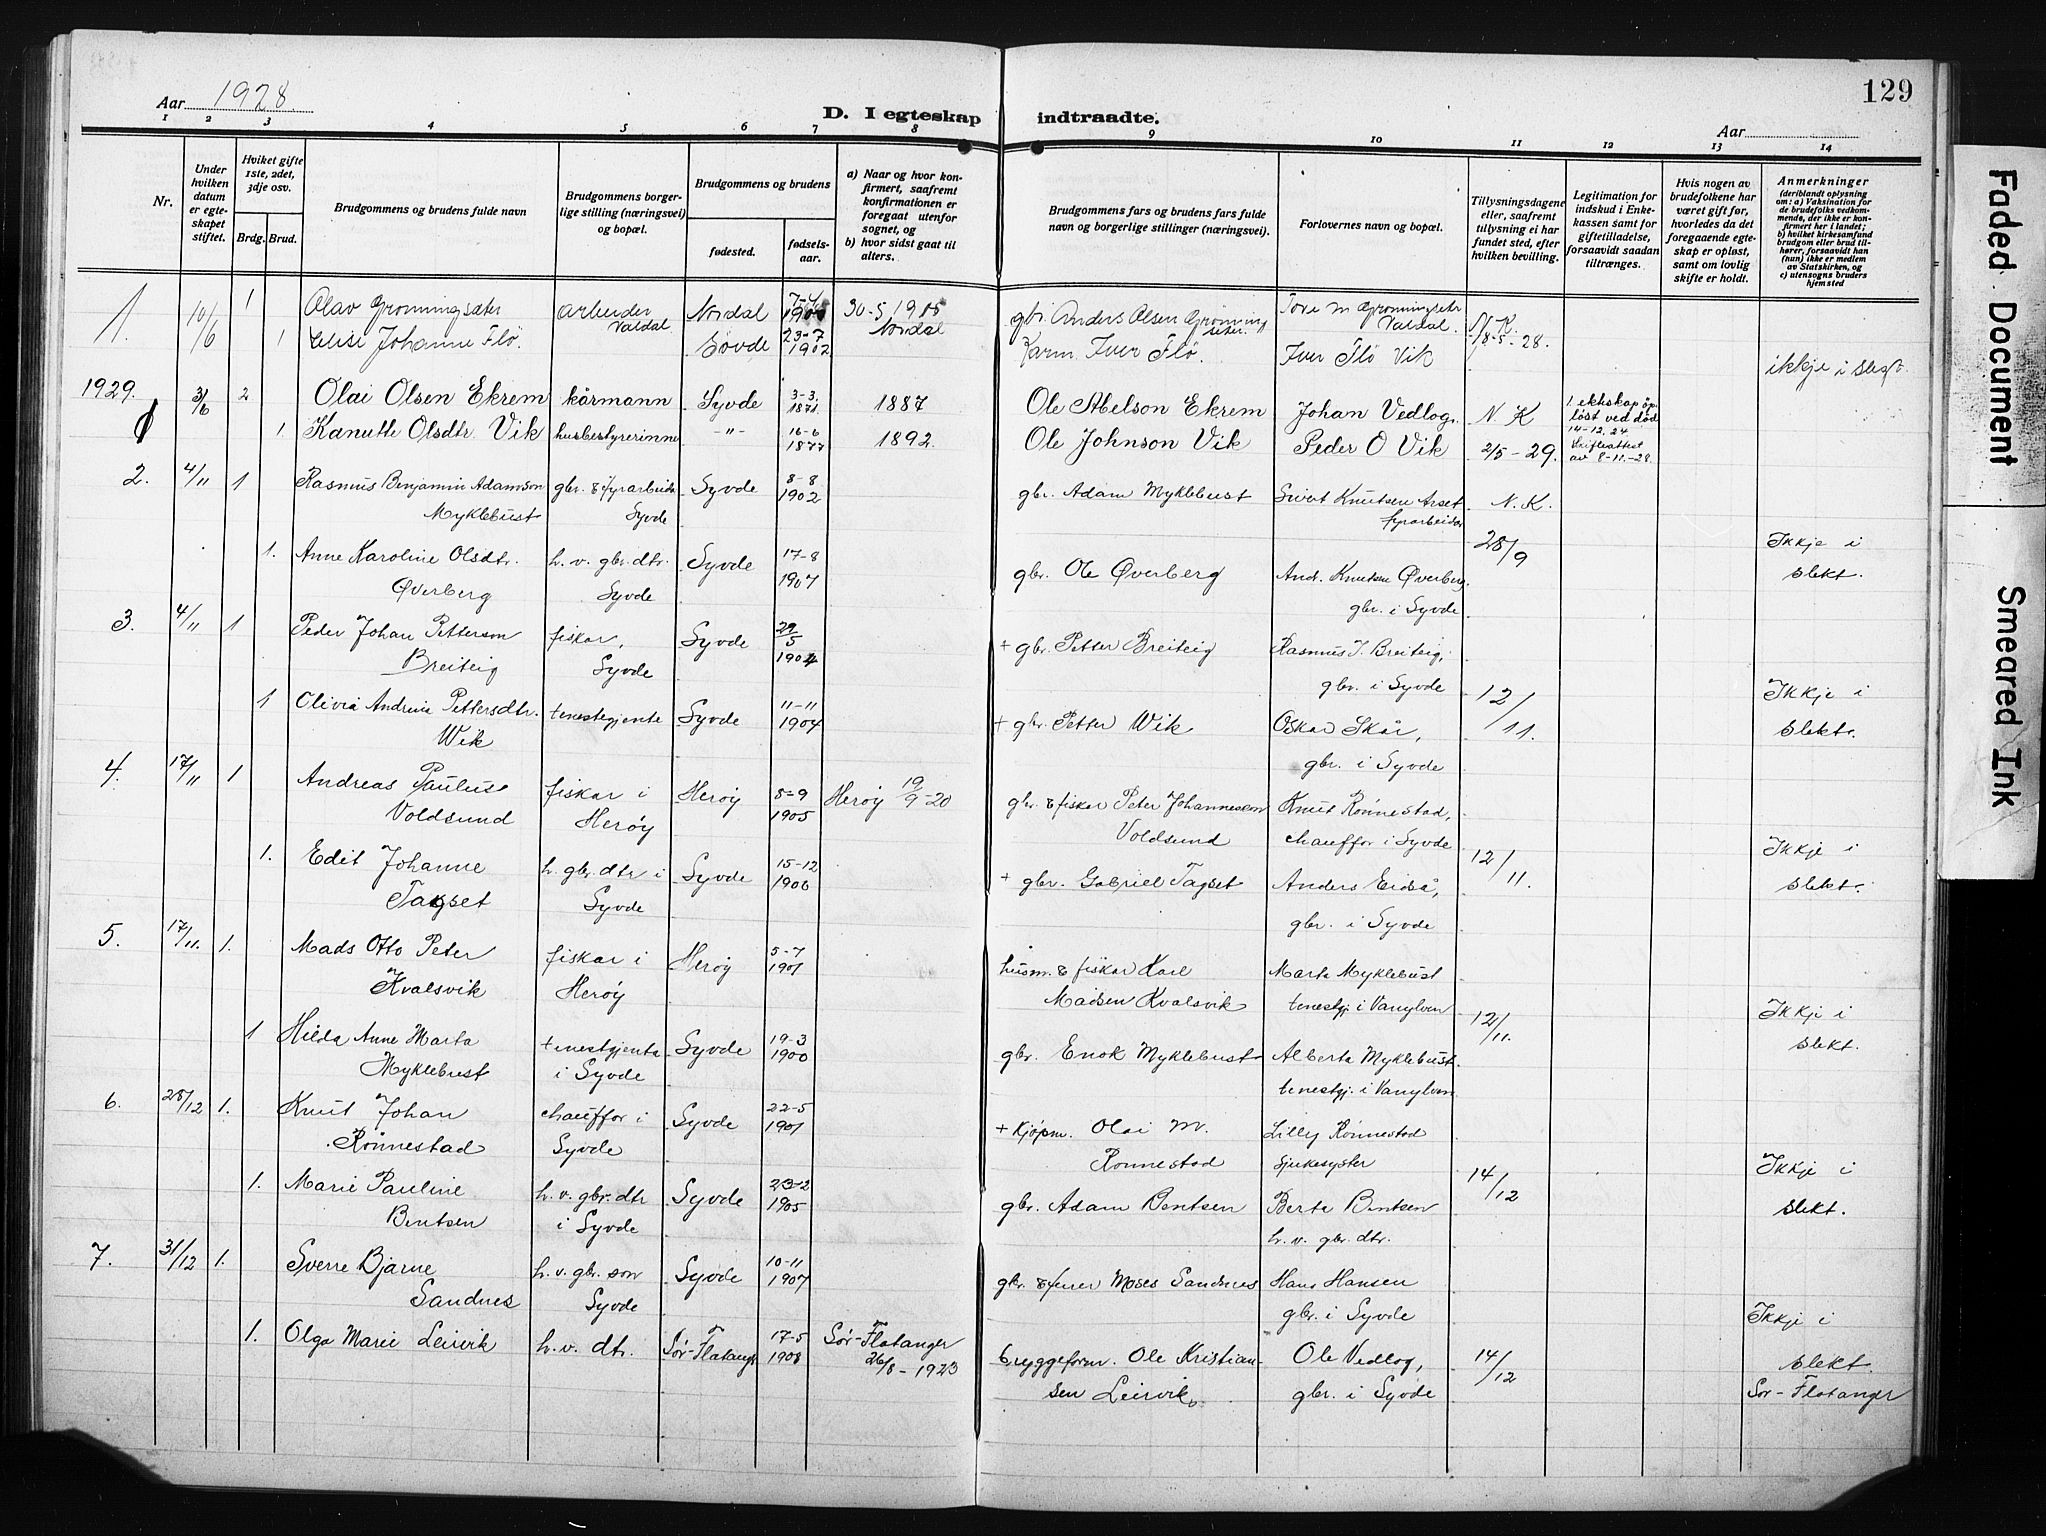 129
Aar 1928
D. I egteskap indtraadte.
Aar
1 2 3 4 5 6 7 8 9 10 11 12 13 14
Nr.
Under hvilken datum er egteskapet stiftet.
Hviket gifte 1ste, 2det, 3dje osv.
Brdg. Brud.
Brudgommens og brudens fulde navn
Brudgommens borgerlige stilling (næringsvei) og bopæl.
Brudgommens og brudens
fødested.
fødselsaar.
a) Naar og hvor konfirmert, saafremt konfirmationen er foregaat utenfor sognet, og
b) hvor sidst gaat til alters.
Brudgommens fars og brudens fars fulde navn og borgerlige stillinger (næringsvei).
Forlovernes navn og bopæl.
Tillysningsdagene eller, saafremt tillysning ei har fundet sted, efter hvilken bevilling.
Legitimation for indskud i Enkekassen samt for giftetilladelse, forsaavidt saadan tiltrænges.
Hvis nogen av brudefolkene har været gift før, hvorledes da det foregaaende egteskap er opløst, samt om lovlig skifte er holdt.
Anmerkninger
(deriblandt oplysning om: a) Vaksination for de brudefolks vedkommende, der ikke er konfirmert her i landet; b) hvilket kirkesamfund brudgom eller brud tilhører, forsaavidt han (hun) ikke er medlem av Statskirken, og c) utensogns bruders hjemsted
1. 10/6 1 Olav Grönningsæter arbeider Valdal Nordal 7-4 30-5 1905 Nordal gbr. Anders Olsen Grönningsæter Tore M Grönningsætr Valdal. N. K.
1 Elisi Johanne Flö. Sövde 23-7 1902 Karm. Iver Flö. Iver Flö Vik 18-5-28. ikkje i slekt.
1929. 3/6 2 Olai Olsen Ekrem kårmann Syvde 3-3. 1871. 1887 Ole Abelson Ekrem Johan Vedlog. N. K 1 ektskap öpløst ved död 14-12.24
1. Kanutte Olsdtr. Vik husbestyrerinne -"- 16-6 1877 1892. Ole Johnson Vik Peder O Vik 2/5-29. Skifteattest av 8-11.-28.
2. 4/11 1 Rasmus Benjamin Adamson Myklebust gbr. & fyrarbeidr Syvde Syvde 8-8 1902 gbr. Adam Myklebust Sivert Knutsen Årset fyrarbeidar N. K.
1. Anne Karoline Olsdtr. Øverberg h. v. gbr. dtr. Syvde Syvde 17-8 1907 gbr. Ole Øverberg And. Knutsen Øverberg, gbr. i Syvde 28/9 Ikkje i slekt.
3. 4/11 1 Peder Johan Petterson Breiteig fiskar, Syvde Syvde 29/5 1904 + gbr. Petter Breiteig Rasmus J. Breiteig, gbr. i Syvde
1 Olivia Andrina Pettersdtr. Wik tenestegjente Syvde 11-11 1904 + gbr. Petter Wik Oskar Skår, gbr. i Syvde 12/11. Ikkje i slekt.
4. 17/11 1 Andreas Paulus Voldsund fiskar i Herøy Herøy 8-9 1905 Herøy 19/9-20 gbr. & fiskar Peter Johannesson Voldsund Knut Rönnestad, chauffor i Syvde
1. Edit Johanne Tagset h. gbr. dtr i Syvde Syvde 15-12 1906 + gbr. Gabriel Tagset Anders Eidså, gbr. i Syvde 12/11. Ikkje i slekt.
5. 17/11. 1. Mads Otto Peter Kvalsvik fiskar i Herøy Herøy 5-7 1901 husm. & fiskar Karl Madsen Kvalsvik Marta Myklebust tenestgj. i Vanylven
1 Hilda Anne Marta Myklebust tenestgjenta i Syvde Syvde 19-3 1900 gbr. Enok Myklebust Alberta Myklebust tenestgj. i Vanylven 12/11. Ikkje i slekt.
6. 28/12 1. Knut Johan Rönnestad chauffor i Syvde Syvde 22-5 1901 + kjöpm. Olai M. Rönnestad Lilly Rönnestad Sjukesyster
1. Marie Pauline Bentsen h. v. gbr. dtr i Syvde Syvde 23-2 1905 gbr. Adam Bentsen Berte Bentsen h. v. gbr. dtr. 14/12 Ikkje i slekt.
7. 31/12 1. Sverre Bjarne Sandnes h. v. gbr. son Syvde Syvde 10-11 1907 gbr. & furer Moses Sandnes Hans Hansen gbr. i Syvde
1. Olga Marie Leirvik h. v. dtr. Sör-Flatangr 17-5 1908 Sör-Flatanger 26/8-1923 bryggeform. Ole Kristiansen Leirvik Ole Vedlog, gbr. i Syvde 14/12 Ikkje i slekt. Sör-Flatanger
Faded Document
Smeared Ink